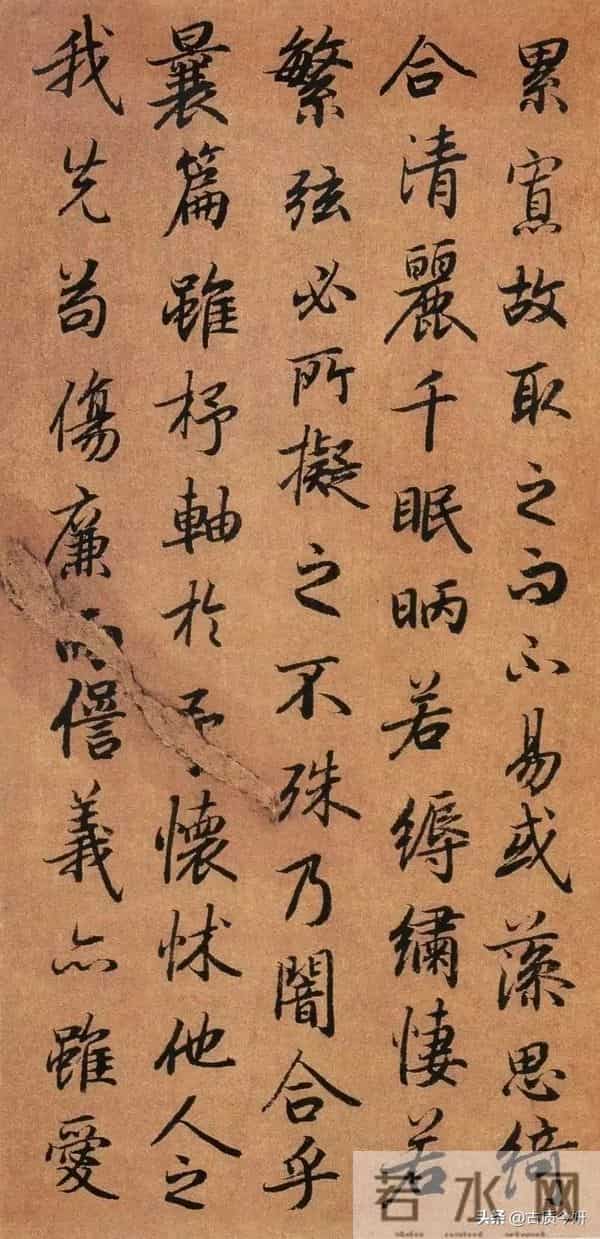 累寔故取之而不易或藻思綺
合清麗千眠昞若縟繡悽若
繁弦必所擬之不殊乃闇合乎
曩篇雖杼軸於予懷怵他人之
我先苟傷廉而諐義亦雖愛
若水网
头条 @古质今研